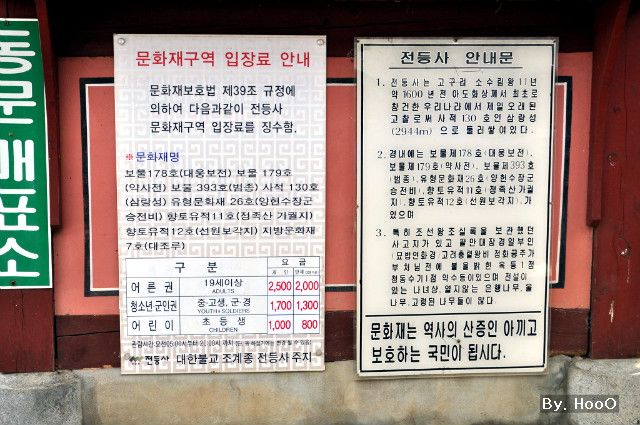 동문매표소
문화재구역 입장료 안내
문화재보호법 제39조 규정에
의하여 다음과같이 전등사
문화재구역 입장료를 징수함.
※문화재명
보물178호(대웅보전) 보물 179호
(약사전) 보물 393호(범종) 사적 130호
(삼랑성) 유형문화재 26호(양헌수장군
승전비) 향토유적11호(정족산 가궐지)
향토유적12호(선원보각지) 지방문화재
7호(대조루)
구 분 요 금
개 인
어 른 권 19세이상 ADULTS 2,500 2,000
청소년 군인권 중·고생, 군·경 YOUTH·SOLDIERS 1,700 1,300
어 린 이 초 등 생 CHILDREN 1,000 800
전등산 대한불교 조계종 전등사 주지
전등사 안내문
1. 전등사는 고구려 소수림왕 11년
약 1600년 전 아도화상께서 최초로
창건한 우리나라에서 제일 오래된
고찰로써 사적 130호인 삼랑성
(2944m) 으로 둘러쌓여있다.
2. 경내에는 보물제178호(대웅보전),
보물제179호(약사전), 보물제393호
(범종), 유형문화재26호(양헌수장군
승전비), 향토유적11호(정족산가궐
지), 향토유적12호(선원보각지), 가
있으며
3. 특히 조선왕조실록을 보관했던
사고지가 있고 팔만대장경일부인
(묘법연화경) 고려충렬왕비 정화궁주가
부처님전에 불을밝힌 옥등1점
청동수기1점 약수등이있으며 전설이
있는 나녀상, 열지않는 은행나무, 울
나무, 고령된 나무들이 많다.
문화재는 역사의 산증인 아끼고
보호하는 국민이 됩시다.
By. HooO